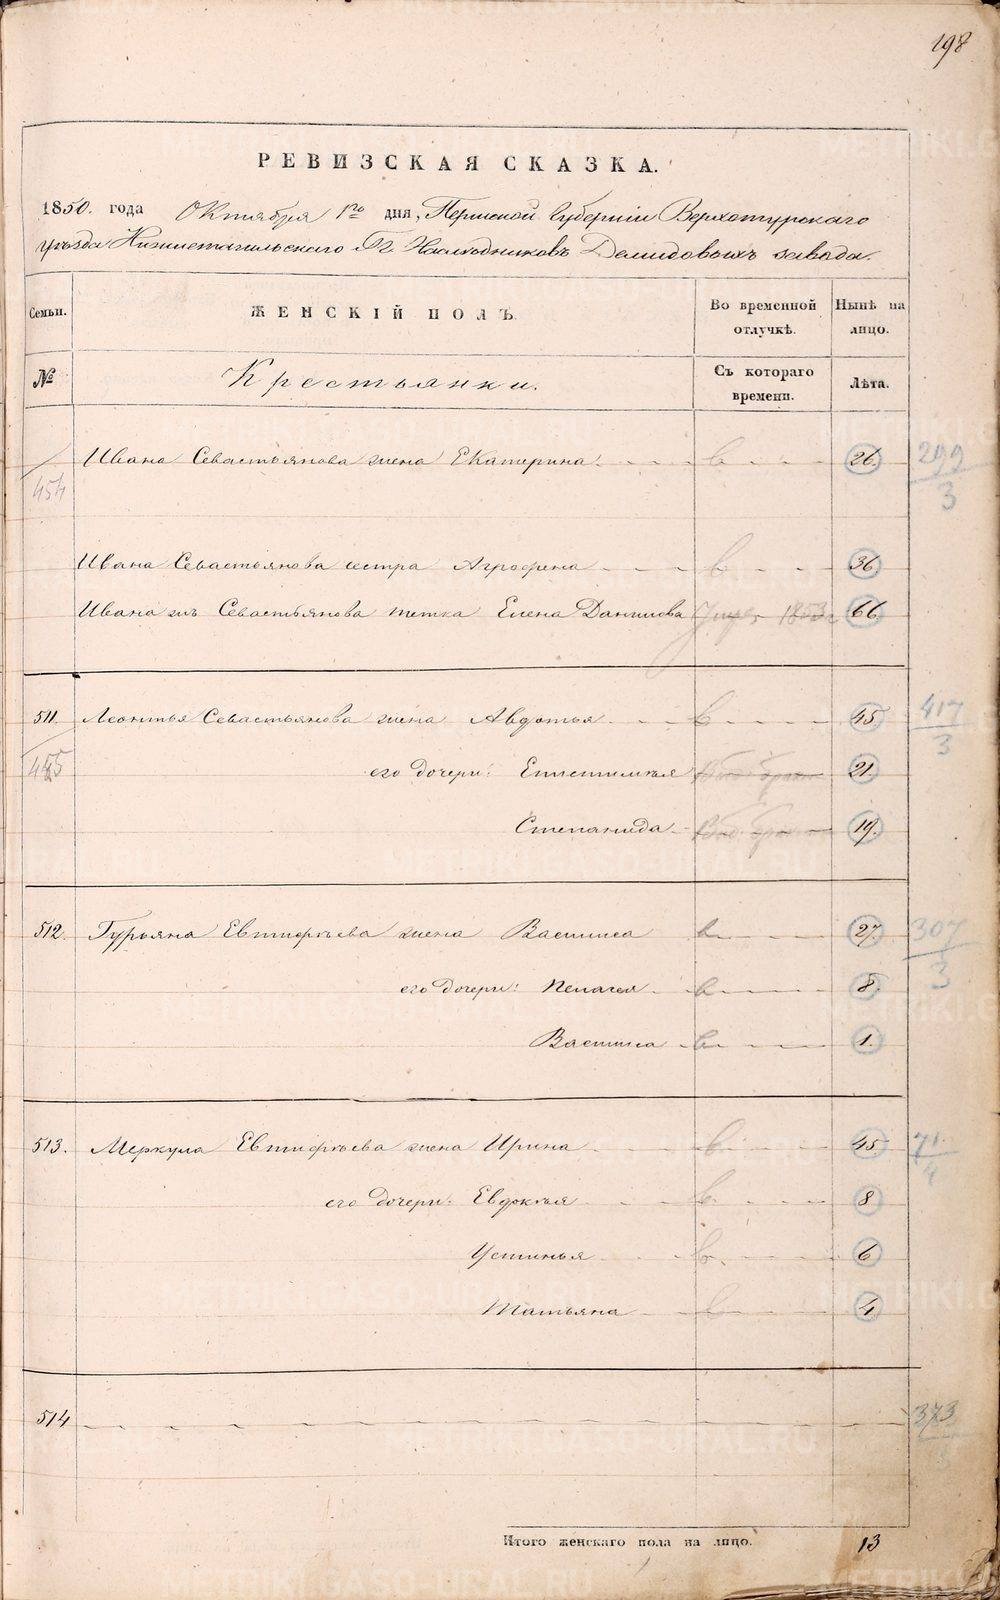 198
РЕВИЗСКАЯ СКАЗКА.
1850. года Октября 1го дня, Пермской Губерніи Верхотурскаго
уѣзда Нижнетагильскаго Гг Наслѣдниковъ Демидовыхъ завода.
Семьи. ЖЕНСКІЙ ПОЛЪ Во временной отлучкѣ. Нынѣ на лицо.
№ Крестьянки. Съ котораго времени. Лѣта.
Ивана Севастьянова жена Екатерина в 26. 299/3
454
Ивана Севастьянова сестра Агрофена в 36
Ивана жъ Севастьянова тетка Елена Данилова 1853 66.
511. Леонтья Севастьянова жена Авдотья в 45. 417/3
455 его дочери: Епистимья 21.
Степанида 19.
512. Гурьяна Евтифѣева жена Васлиса в 27. 307/3
его дочери: Пелагея в 8.
Васлиса в 1.
513. Меркула Евтифѣева жена Ирина в 45 71/4
его дочери: Евдокья в 8
Устинья в 6
Татьяна в 4
514 373/3
Итого женскаго пола на лицо. 13
METRIKI.GASO-URAL.RU